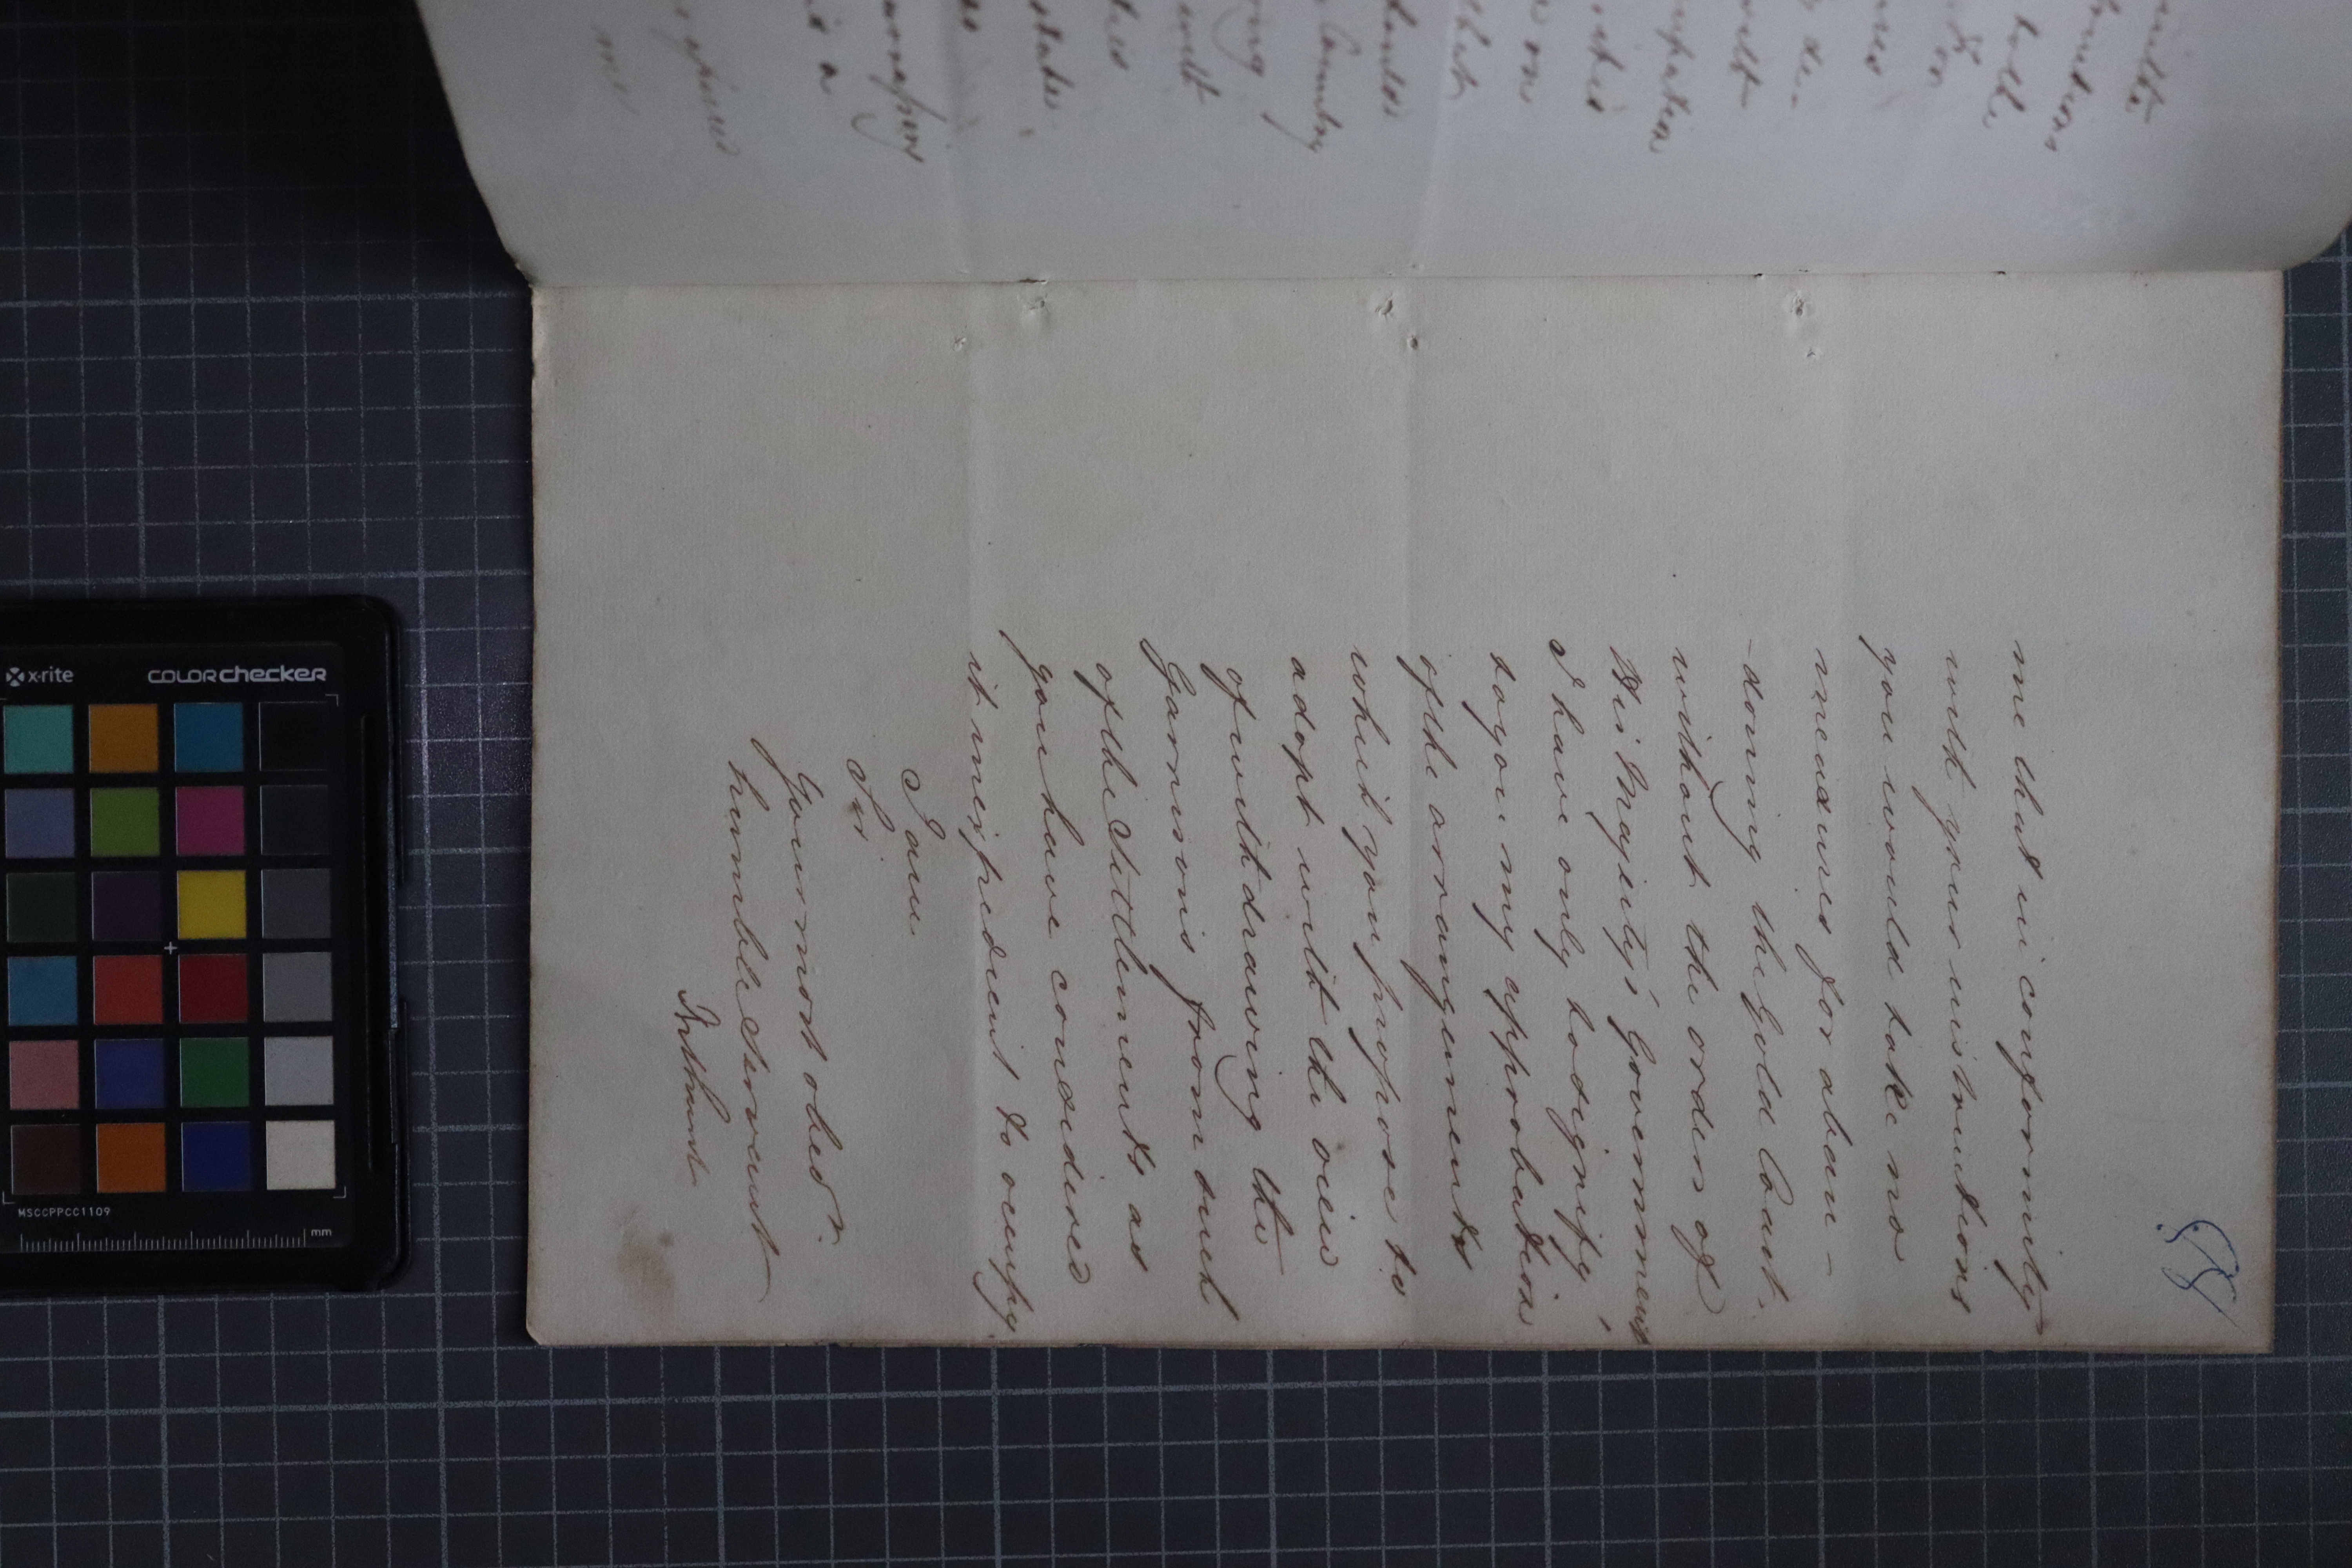 58
me that in conformity
with your instructions
you would take no
measures for aban-
-doning the Gold Coast.
without the orders of
His Majesty's Government
I have only to signify
to you my approbation
of the arrangements
which you propose to
adopt with the view
of withdrawing the
Garrisons from such
of the Settlements as
you have considered
it inexpedient to occupy.
I am
Sir
Your most obed
humble Servant
Bathurst
x-rite
COLORchecker
MSCCPPCC1109
mm